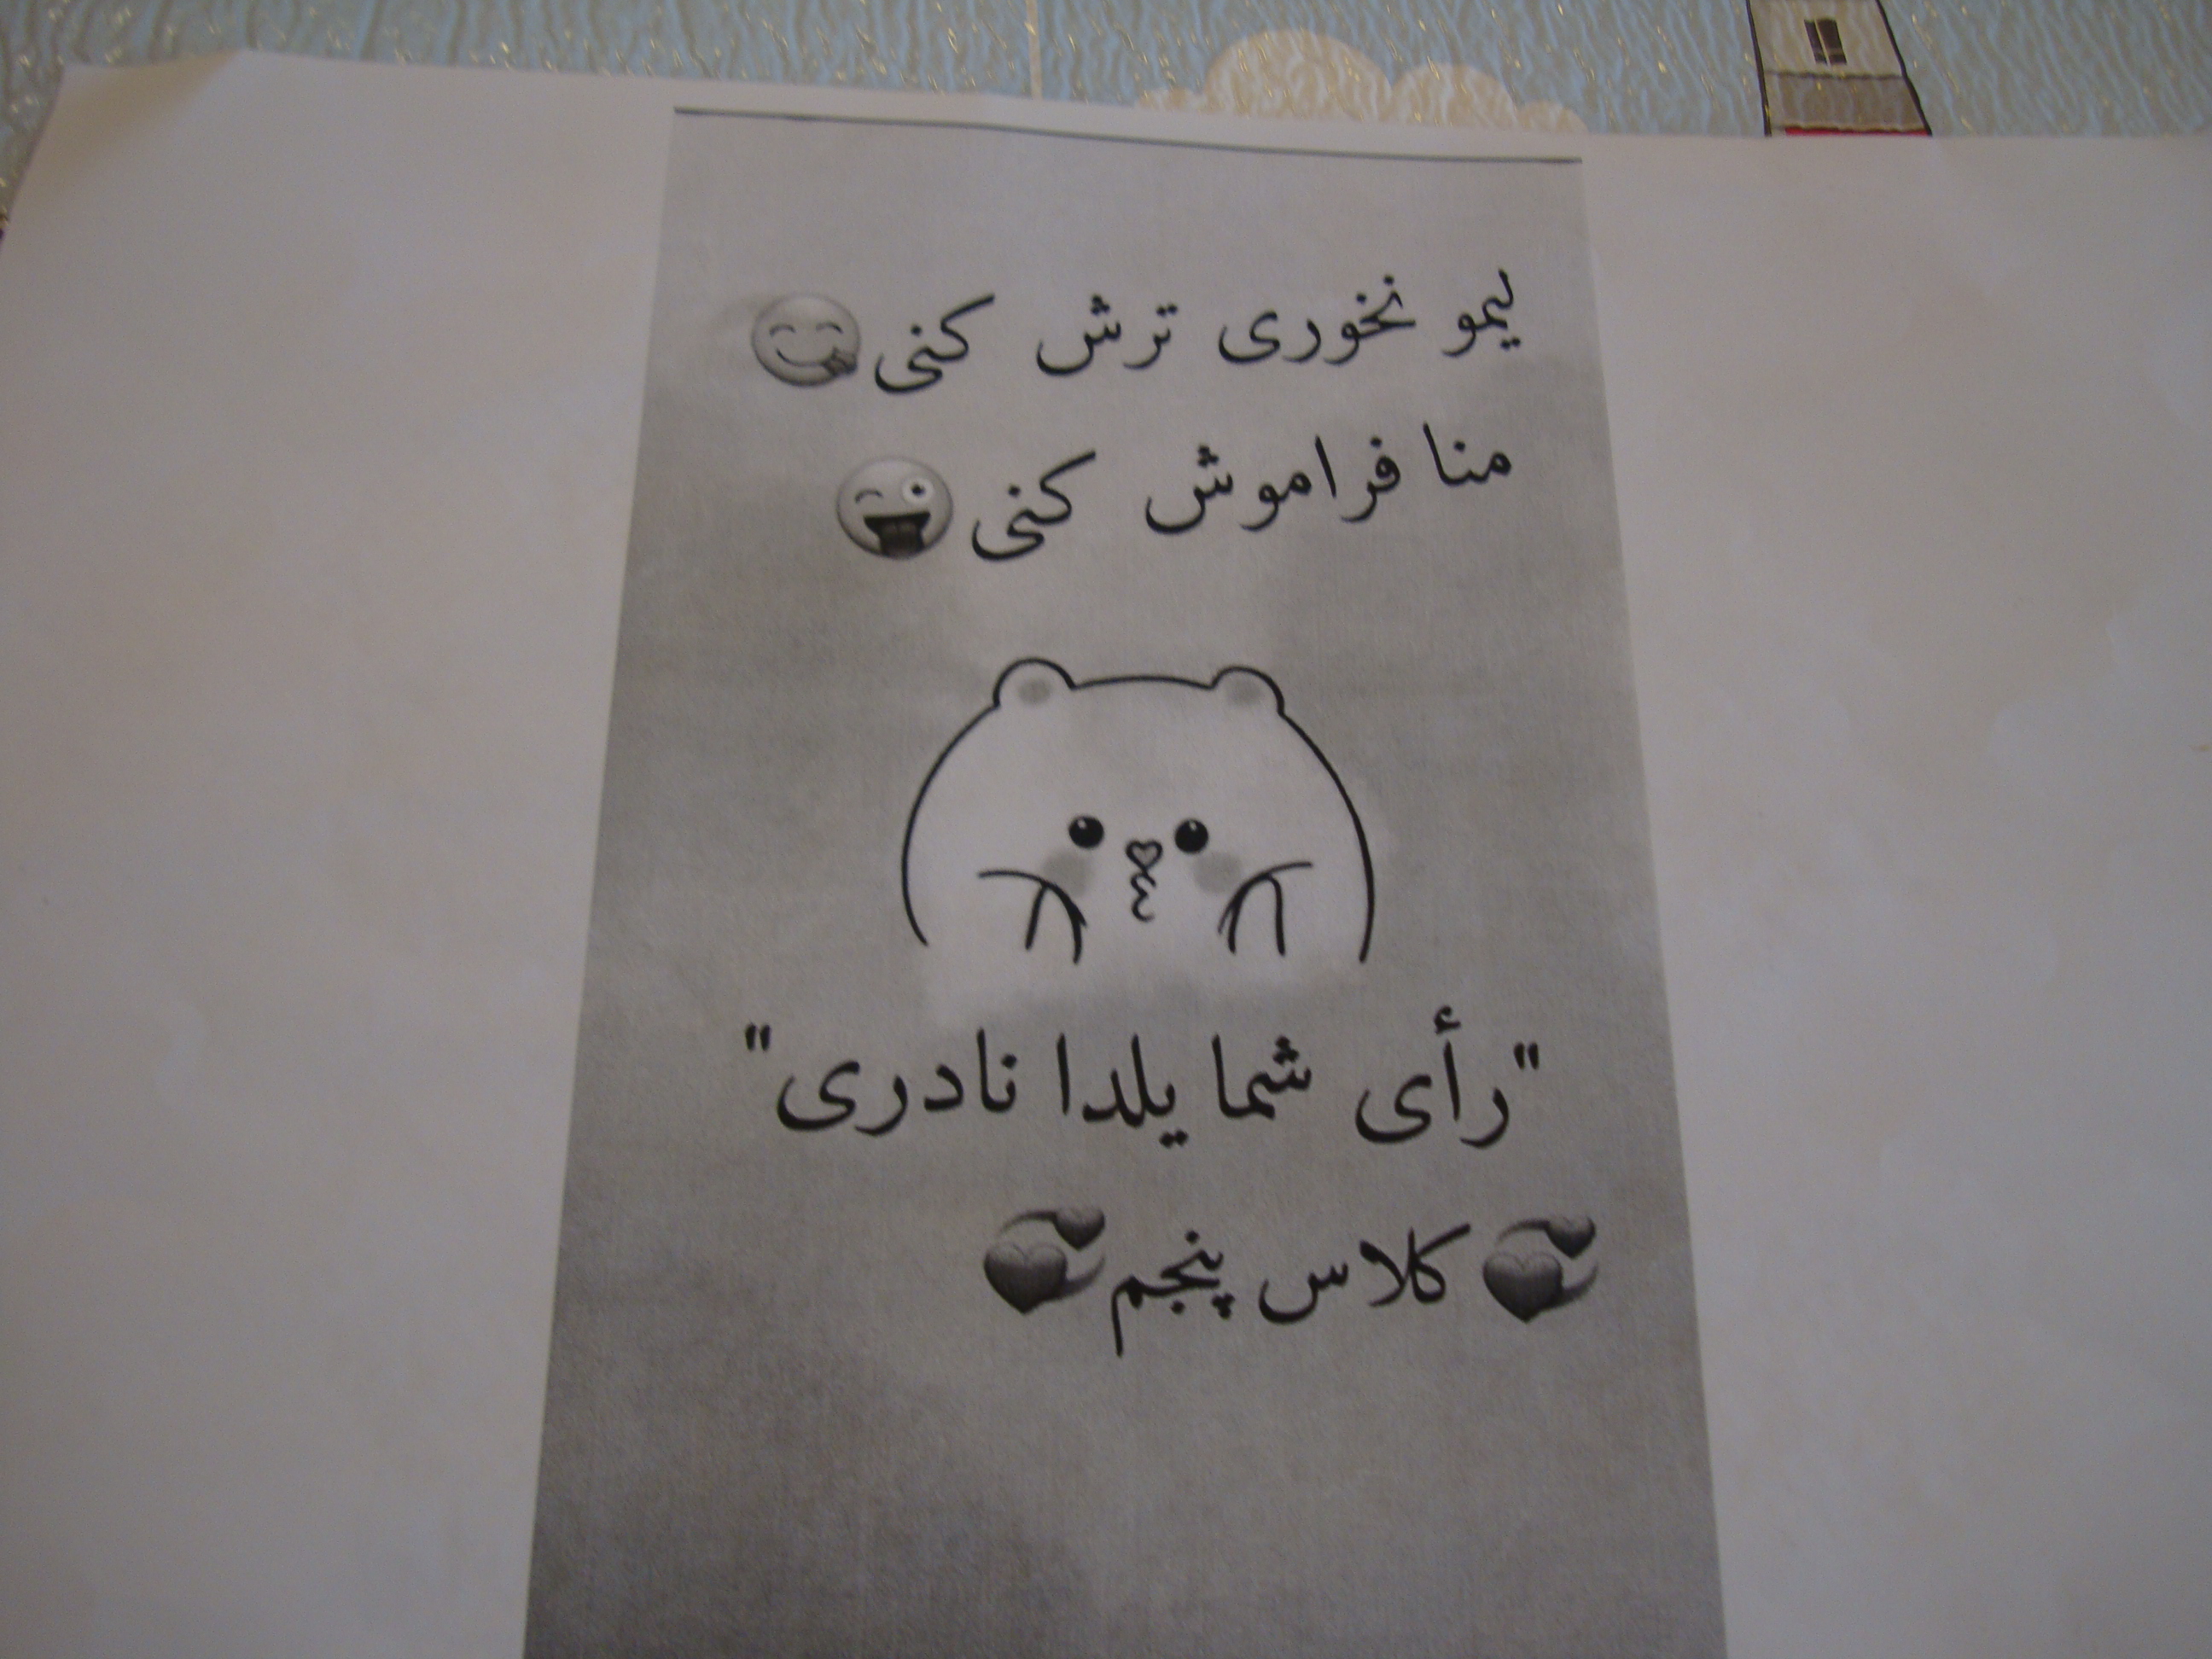 لیمو نخوری ترش کنی😋
منا فراموش کنی🤪
"رأی شما یلدا نادری"
💞کلاس پنجم💞